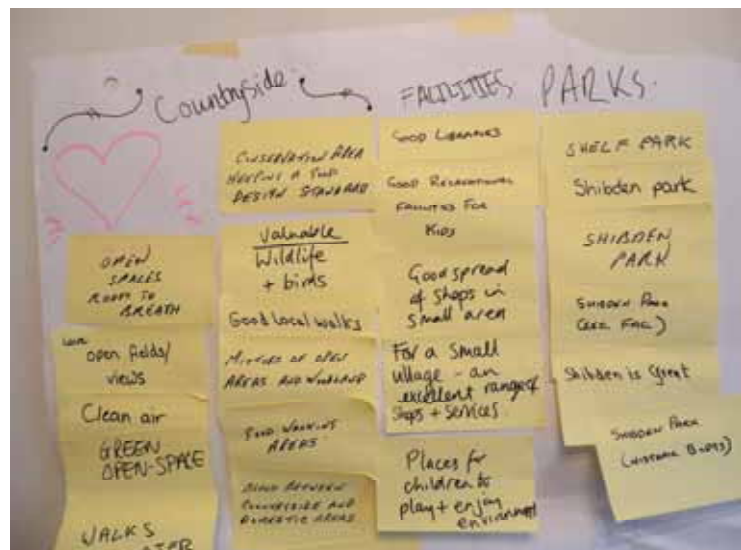 Countryside
FACILITIES
PARKS.
OPEN
SPACES
ROOM TO
BREATH
open fields/
views
Clean air
GREEN
OPEN-SPACE
WALKS
CONSERVATION AREA
KEEPING A
DESIGN STANDARD
Valuable
Wildlife
+ birds
Good local walks
MIXTURE OF OPEN
AREAS AND WOODLAND
GOOD WALKING
AREAS
BETWEEN
COUNTRYSIDE AND
DOMESTIC AREAS
GOOD LIBRARIES
GOOD RECREATIONAL
FACILITIES FOR
KIDS
Good spread
of shops in
small area
For a small
village - an
excellent range of
shops + services
Places for
children to
play + enjoy
environment
SHELF PARK
Shibden park
SHIBDEN
PARK
SHIBDEN PARK
Shibden is Great
SHIBDEN PARK